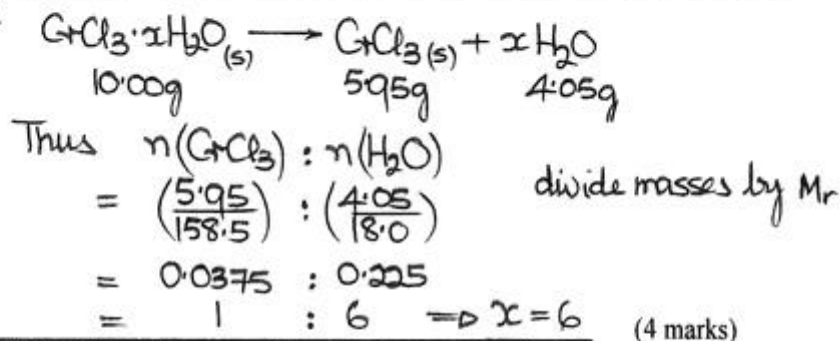 CrCl₃·xH₂O(s) ⟶ CrCl₃(s) + xH₂O
10·00g 5·95g 4·05g
Thus n(CrCl₃) : n(H₂O)
= (5·95/158·5) : (4·05/18·0) divide masses by Mr
= 0·0375 : 0·225
= 1 : 6 ⇒ x = 6 (4 marks)